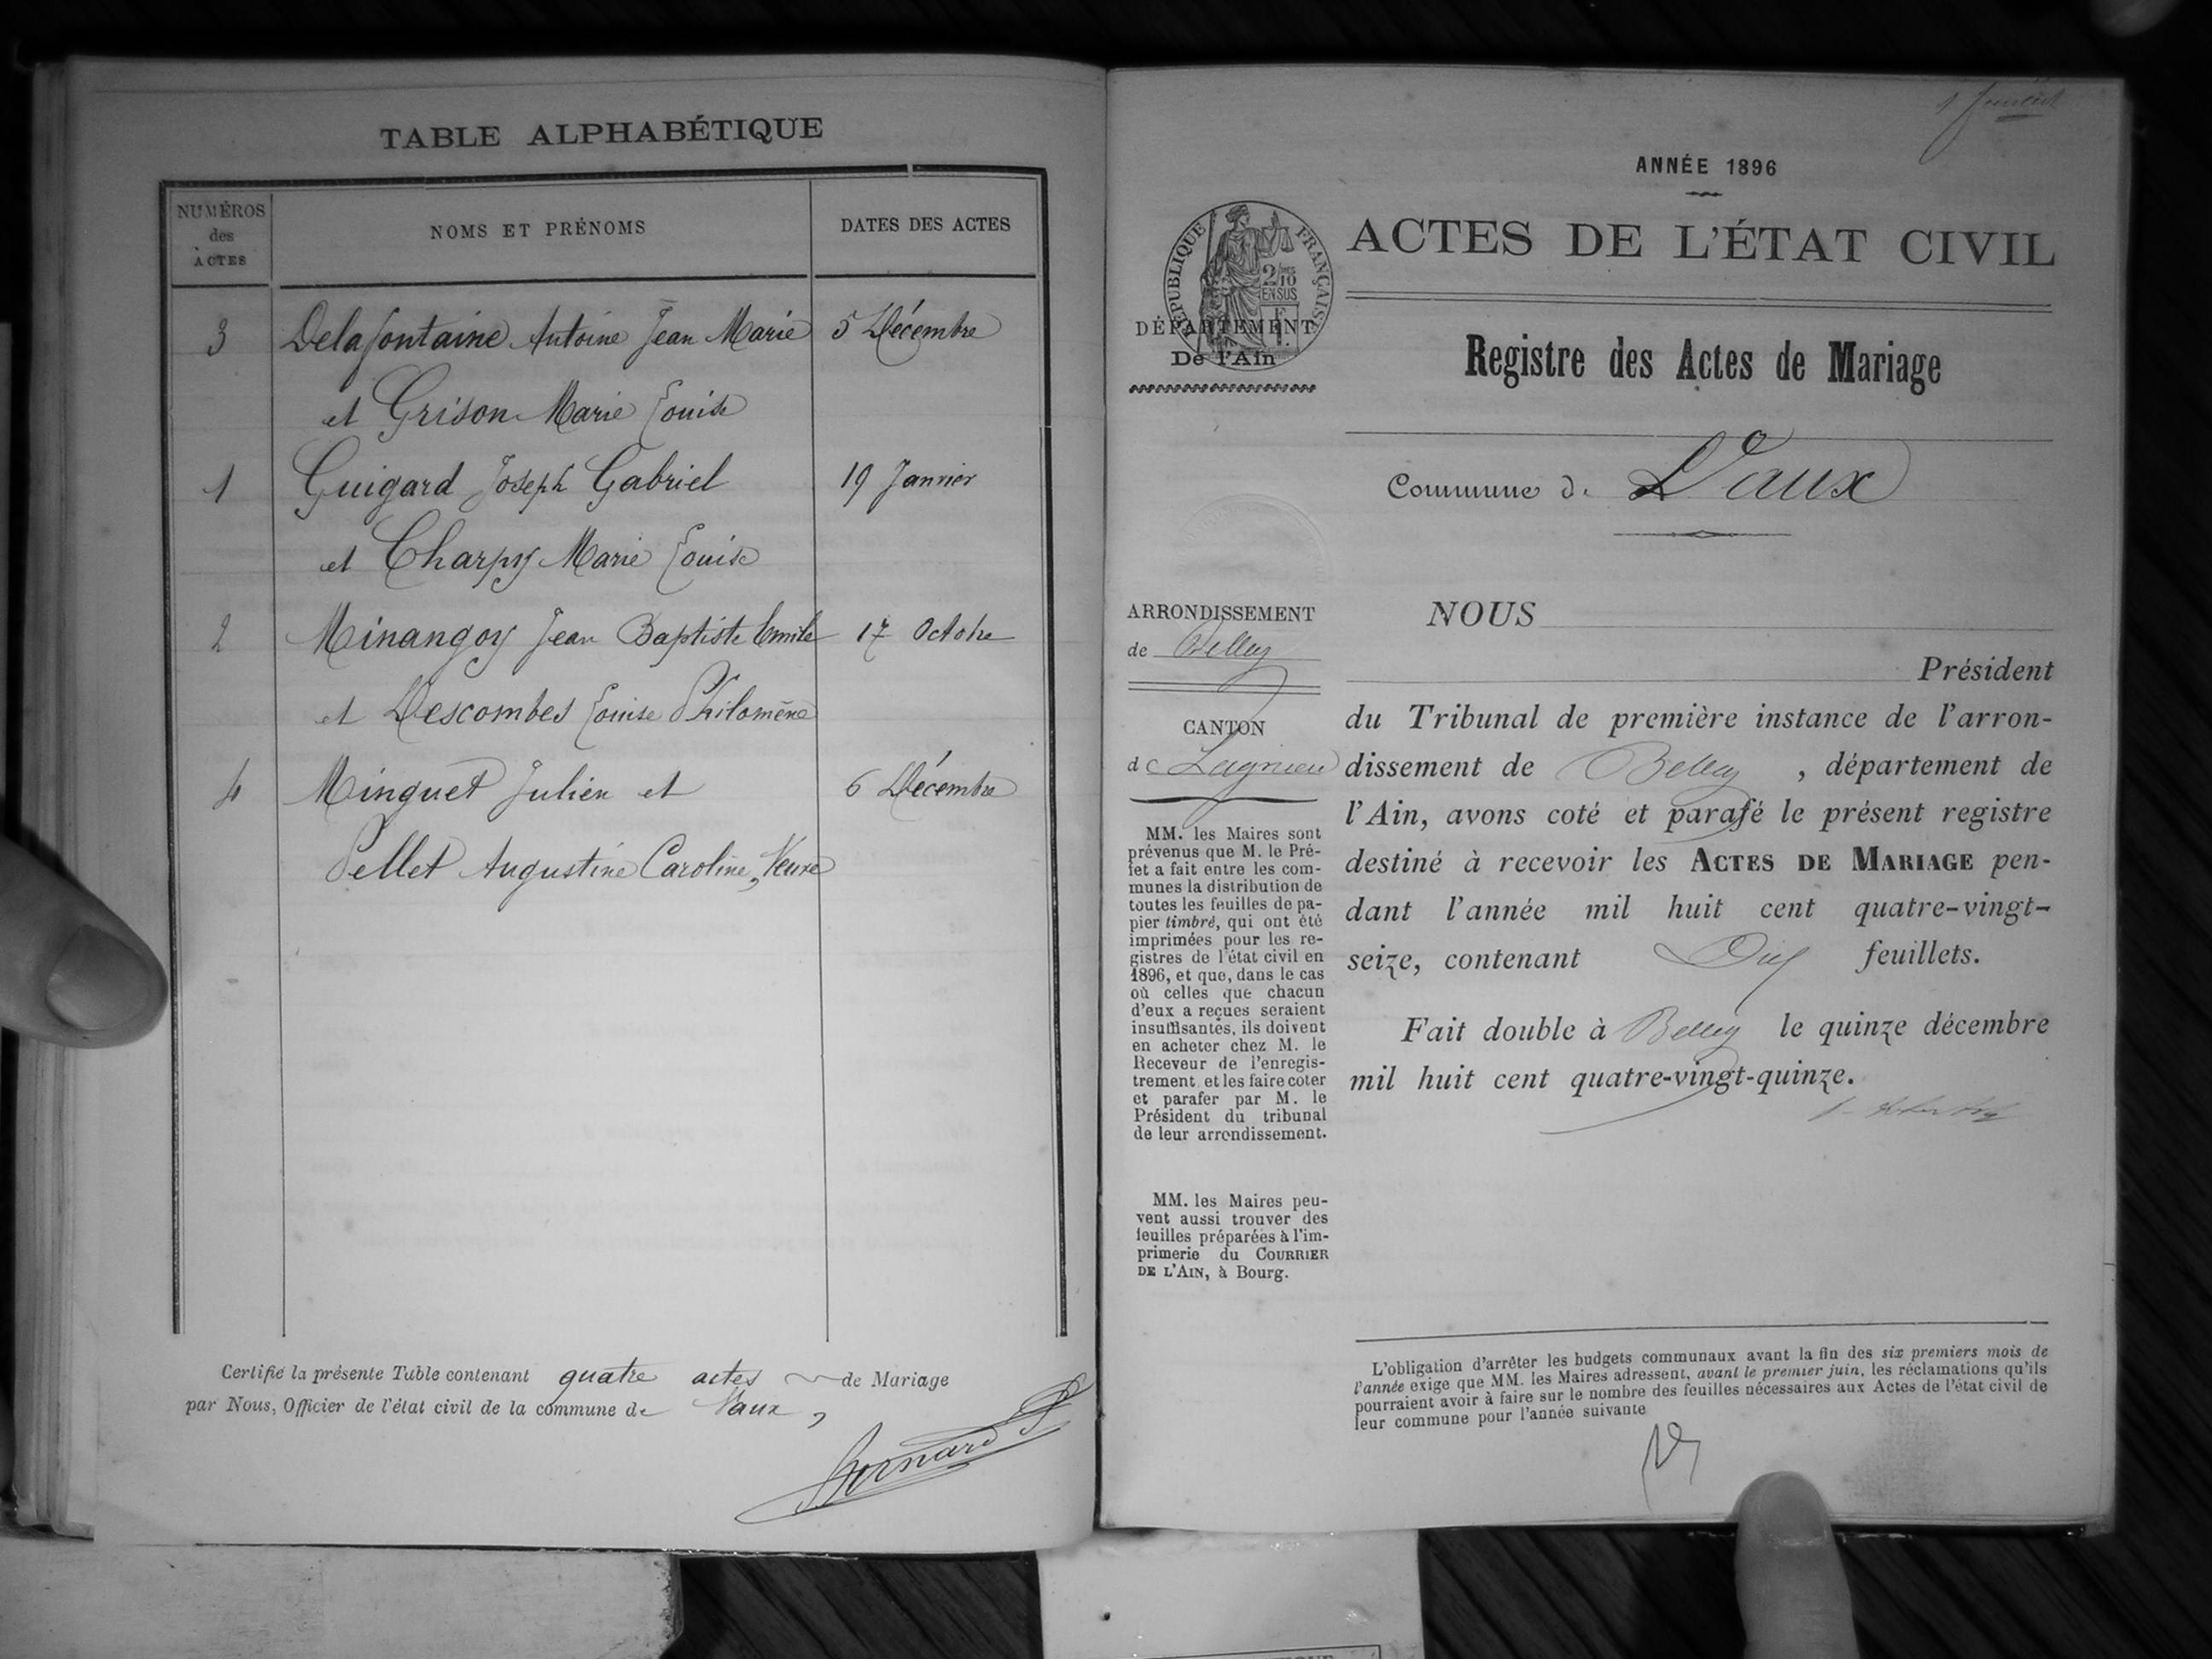 TABLE ALPHABÉTIQUE
NUMÉROS
des
ACTES
NOMS ET PRÉNOMS
DATES DES ACTES
3 Delafontaine Antoine Jean Marie 5 Décembre
et Grison Marie Louise
1 Guigard Joseph Gabriel 19 Janvier
et Charpy Marie Louise
2 Minangoy Jean Baptiste Emile 17 Octobre
et Descombes Louise Philomène
4 Minguet Julien et 6 Décembre
Pellet Augustine Caroline, Veuve
Certifié la présente Table contenant quatre actes de Mariage
par Nous, Officier de l'état civil de la commune de Vaux,
Bernard
ANNÉE 1896
RÉPUBLIQUE FRANÇAISE
2/10
EN SUS
ACTES DE L'ÉTAT CIVIL
DÉPARTEMENT
De l'Ain
Registre des Actes de Mariage
Commune de Vaux
ARRONDISSEMENT
de Belley
CANTON
de Lagnieu
MM. les Maires sont
prévenus que M. le Pré-
fet a fait entre les com-
munes la distribution de
toutes les feuilles de pa-
pier timbré, qui ont été
imprimées pour les re-
gistres de l'état civil en
1896, et que, dans le cas
où celles que chacun
d'eux a reçues seraient
insuffisantes, ils doivent
en acheter chez M. le
Receveur de l'enregis-
trement et les faire coter
et parafer par M. le
Président du tribunal
de leur arrondissement.
MM. les Maires peu-
vent aussi trouver des
feuilles préparées à l'im-
primerie du COURRIER
DE L'AIN, à Bourg.
NOUS
Président
du Tribunal de première instance de l'arron-
dissement de Belley, département de
l'Ain, avons coté et parafé le présent registre
destiné à recevoir les ACTES DE MARIAGE pen-
dant l'année mil huit cent quatre-vingt-
seize, contenant Dix feuillets.
Fait double à Belley le quinze décembre
mil huit cent quatre-vingt-quinze.
L'obligation d'arrêter les budgets communaux avant la fin des six premiers mois de
l'année exige que MM. les Maires adressent, avant le premier juin, les réclamations qu'ils
pourraient avoir à faire sur le nombre des feuilles nécessaires aux Actes de l'état civil de
leur commune pour l'année suivante